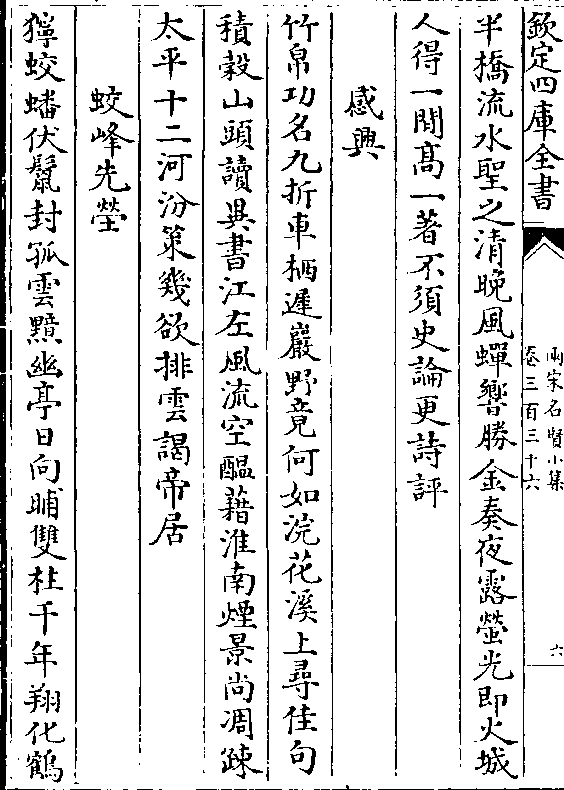 欽定四庫全書
兩宋名賢小集
卷三百三十六
六
半橋流水聖之清晚風蟬響勝金奏夜露螢光即火城
人得一閒髙一著不須史論更詩評
感興
竹帛功名九折車栖遲巖野竟何如浣花溪上尋佳句
積榖山頭讀異書江左風流空醖藉淮南煙景尚凋疎
太平十二河汾策幾欲排雲謁帝居
蛟峰先塋
獰蛟蟠伏鬛封孤雲黯幽亭日向晡雙柱千年翔化鶴